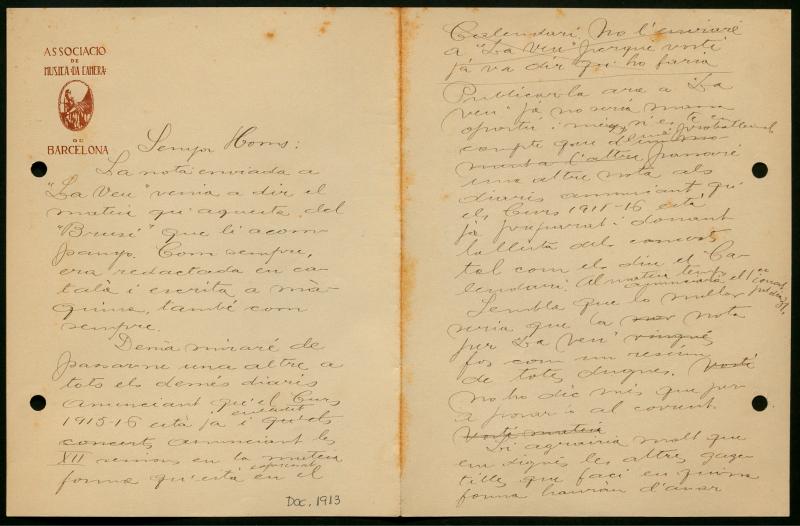 ASSOCIACIO
DE
MUSICA · DA CAMERA ·
DE
BARCELONA
Senyor Homs:
La nota enviada a
"La Veu" venia a dir el
mateix qu'aquesta del
"Brusi" que li acom-
panyo. Com sempre,
era redactada en ca-
talà i escrita a mà-
quina, també com
sempre.
Demà miraré de
passarne una altre, a
tots els demés diaris
anunciant qu'el Curs
1915-16 està ja enllestit i qu'els
concerts anunciant les
XII sessions en la mateixa
forma qu'està expresat en el
DOC. 1913
Calendari. No l'enviaré
a "La Veu" perque vosté
ja va dir qu'ho faria
Publicarla ara a "La
Veu" ja no seria massa
oportú i menys si es té en
compte que
l'altre passaré
una altre nota als
diaris anunciant qu'
el Curs 1915-16 està
ja preparat i donant
la llista dels concerts
tal com els diu el "Ca-
lendari". Al mateix temps anunciaré el 1er concert pel dia 31.
Sembla que lo millor
seria que la nota
per La Veu vingués
fos com un resúm
de totes dugues. Vosté
no ho dic més que per
a posarlo al corrent.
Vosté mateix
Li agrairia molt que
em digués les altres gaze-
tilles que faci en quina
forma hauràn d'anar